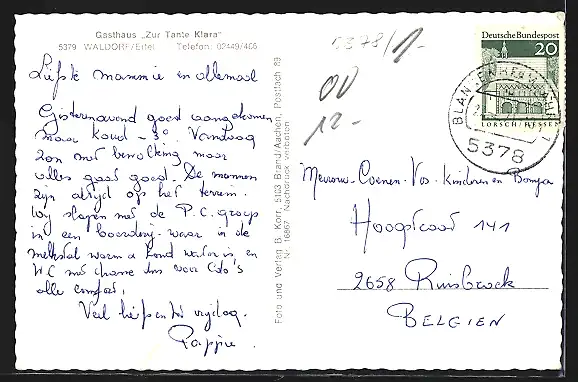 Gasthaus „Zur Tante Klara"
5379 WALDORF/Eifel Telefon: 02449/406
Liefste mammie en allemaal
Gisterenavond goed aangekomen
maar koud -3°. Vandaag
zon met bewolking maar
alles gaat goed. De mannen
zijn altijd op het terrein.
Wij slapen met de P.C. groep
in een boerderij waar in de
meestal warm & koud water is, en
WC met chasse dus voor Colo's
alle comfort.
Veel liefs en tot vrijdag.
Pappie.
Foto und Verlag B. Korr, 5103 Brand/Aachen, Postfach 89
Nr. 16867 Nachdruck verboten
5378/1-
00
12-
Deutsche Bundespost
20
LORSCH/HESSEN
BLANKENHEIM
5378
Mevrouw Coenen-Vos-kinderen en Bompa
Hoogstraat 141
2658 Ruisbroek
BELGIEN